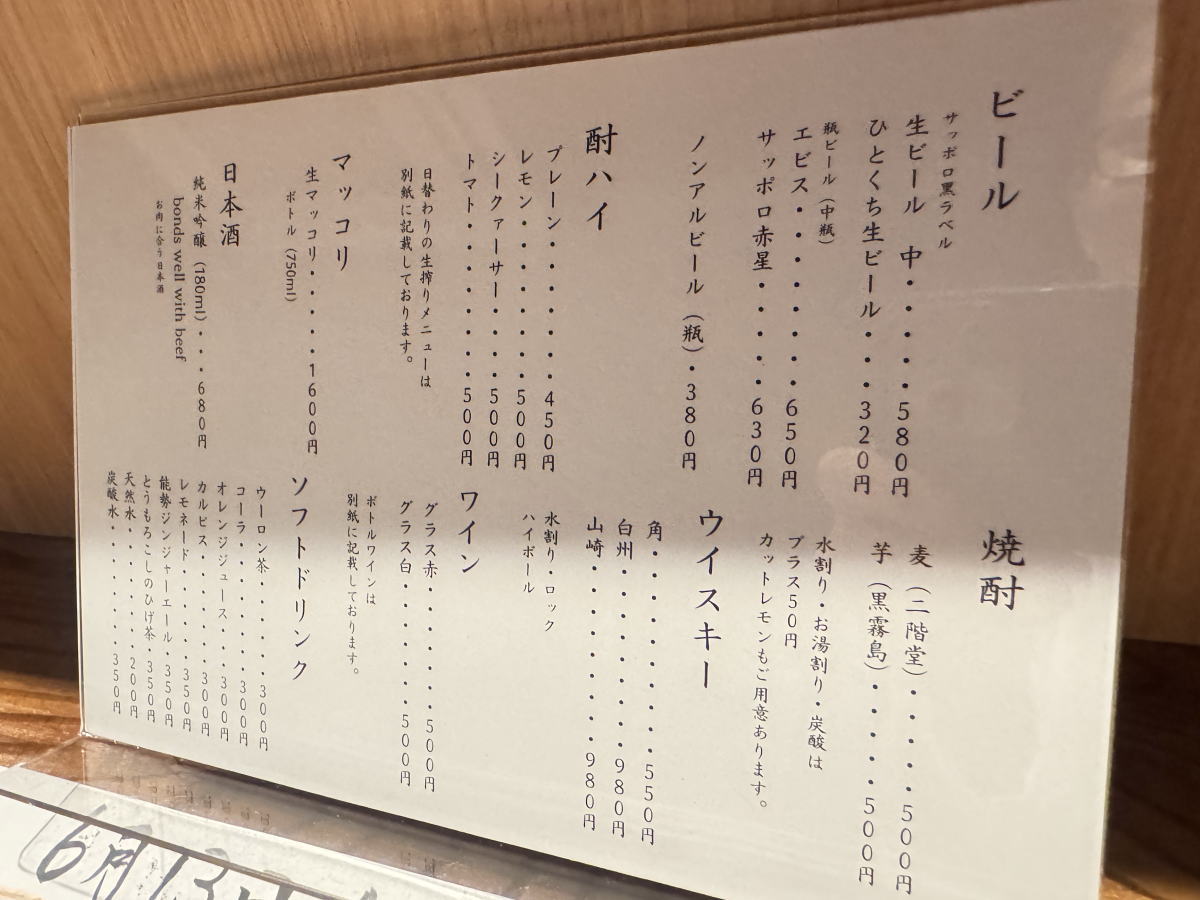 ビール
サッポロ黒ラベル
生ビール 中・・・・・580円
ひとくち生ビール・・・320円
瓶ビール(中瓶)
エビス・・・・・・・・650円
サッポロ赤星・・・・・630円
ノンアルビール(瓶)・380円
酎ハイ
プレーン・・・・・・・450円
レモン・・・・・・・・500円
シークァーサー・・・・500円
トマト・・・・・・・・500円
日替わりの生搾りメニューは
別紙に記載しております。
マッコリ
生マッコリ・・・・・1600円
ボトル(750ml)
日本酒
純米吟醸(180ml)・・・680円
bonds well with beef
お肉に合う日本酒
焼酎
麦(二階堂)・・・・・500円
芋(黒霧島)・・・・・500円
水割り・お湯割り・炭酸は
プラス50円
カットレモンもご用意あります。
ウイスキー
角・・・・・・・・・・550円
白州・・・・・・・・・980円
山崎・・・・・・・・・980円
水割り・ロック
ハイボール
ワイン
グラス赤・・・・・・・500円
グラス白・・・・・・・500円
ボトルワインは
別紙に記載しております。
ソフトドリンク
ウーロン茶・・・・・300円
コーラ・・・・・・・300円
オレンジジュース・・300円
カルピス・・・・・・300円
レモネード・・・・・350円
能勢ジンジャーエール・350円
とうもろこしのひげ茶・350円
天然水・・・・・・・200円
炭酸水・・・・・・・350円
6月13